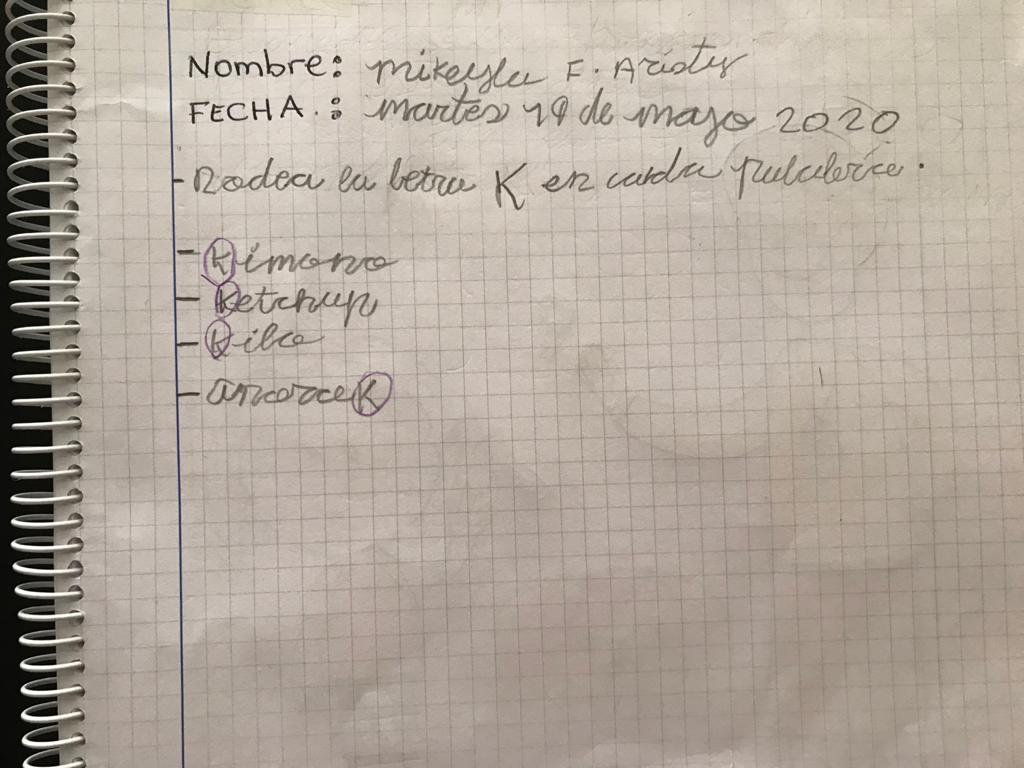 Nombre: mikeyla F. Aristy
FECHA.: martes 19 de mayo 2020
- Rodea la letra K en cada palabra.
- Kimono
- Ketchup
- Kilo
- anorak